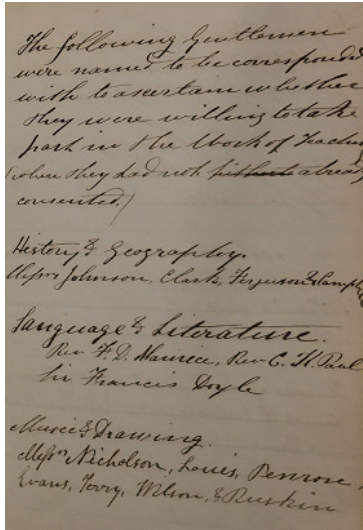 The following Gentlemen
were named to be correspond
with to ascertain whether
they were willing to take
part in the Work of Teachin
(where they had not hitherto alread
consented.)
History & Geography.
Messrs Johnson, Clark, Ferguson & Camp
Language & Literature.
Rev F. D. Maurice, Rev C. K. Paul
Sir Francis Doyle
Music & Drawing.
Messrs Nicholson, Louis, Penrose,
Evans, Terry, Wilson, & Ruskin